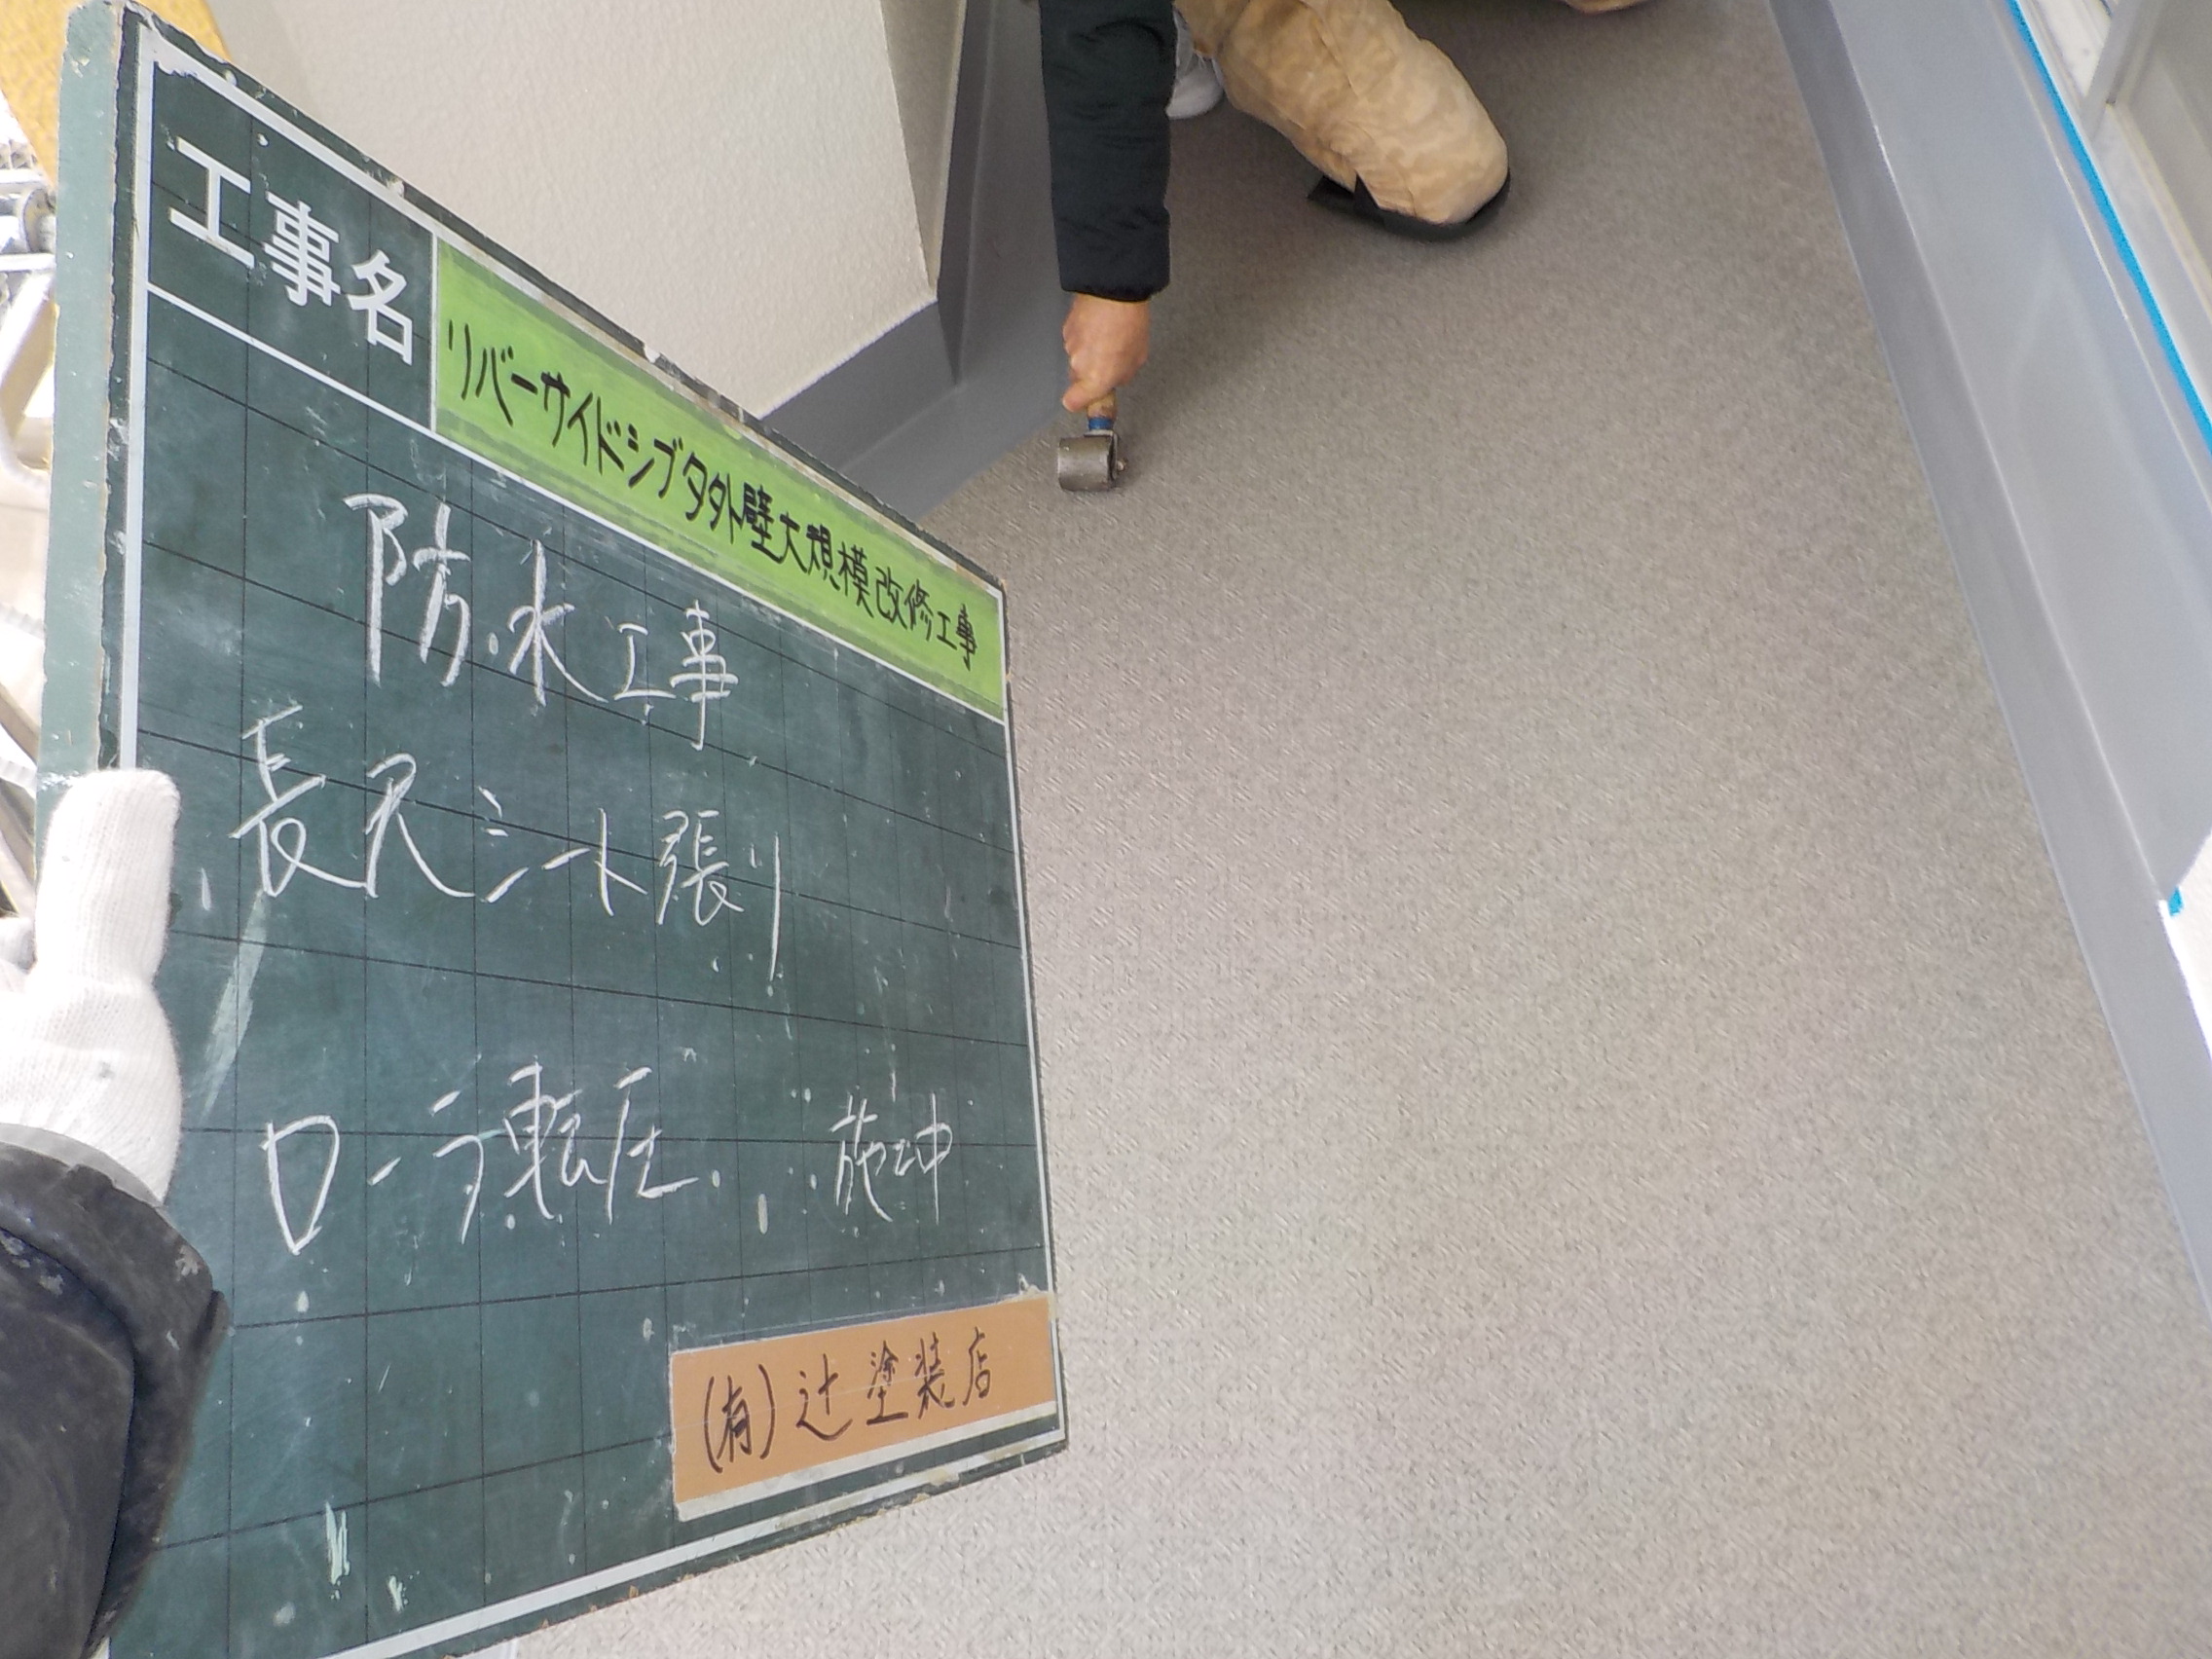 工事名
リバーサイドシブタ外壁大規模改修工事
防水工事
長尺シート張り
ローラ転圧 施工中
(有)辻塗装店